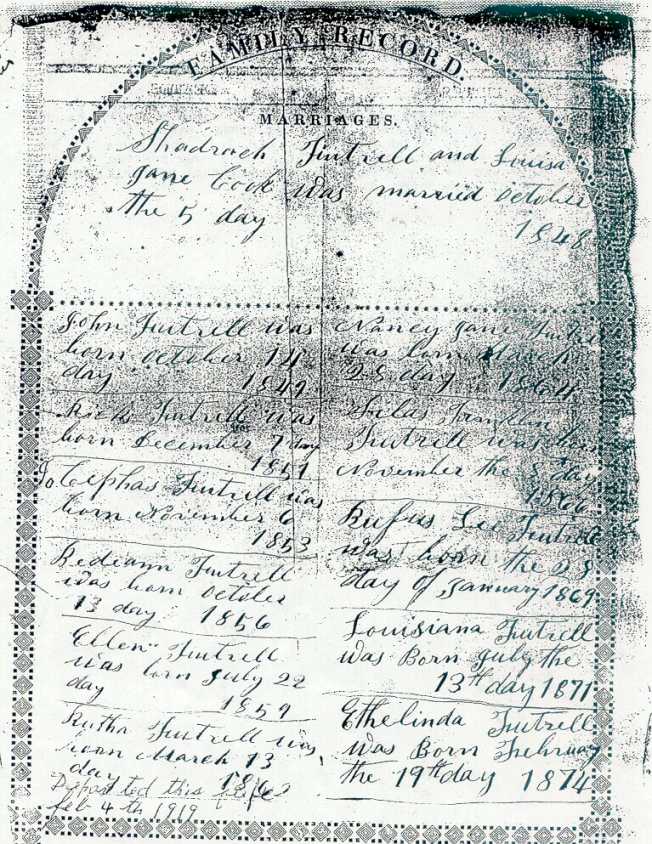 FAMILY RECORD.
MARRIAGES.
Shadrach Futrell and Louisa
Jane Cook was married october
the 5 day
1848
John Futrell was
born october 14
day 1849
Ricks Futrell was
born December 7 day
1851
Jo Cephas Futrell was
born November 6
1853
Rediann Futrell
was born october
13 day 1856
Ellen Futrell
was born July 22
day 1859
Rutha Futrell was
born March 13
day 1862
Departed this life
feb 4 th 1919
Nancy Jane
was born March
28 day 1864
Silas Franklin
Futrell was born
November the 8 day
1866
Rufus Lee Futrell
was born the 28
day of January 1869
Louisiana Futrell
was Born July the
13th day 1871
Ethelinda Futrell
was Born February
the 19th day 1874